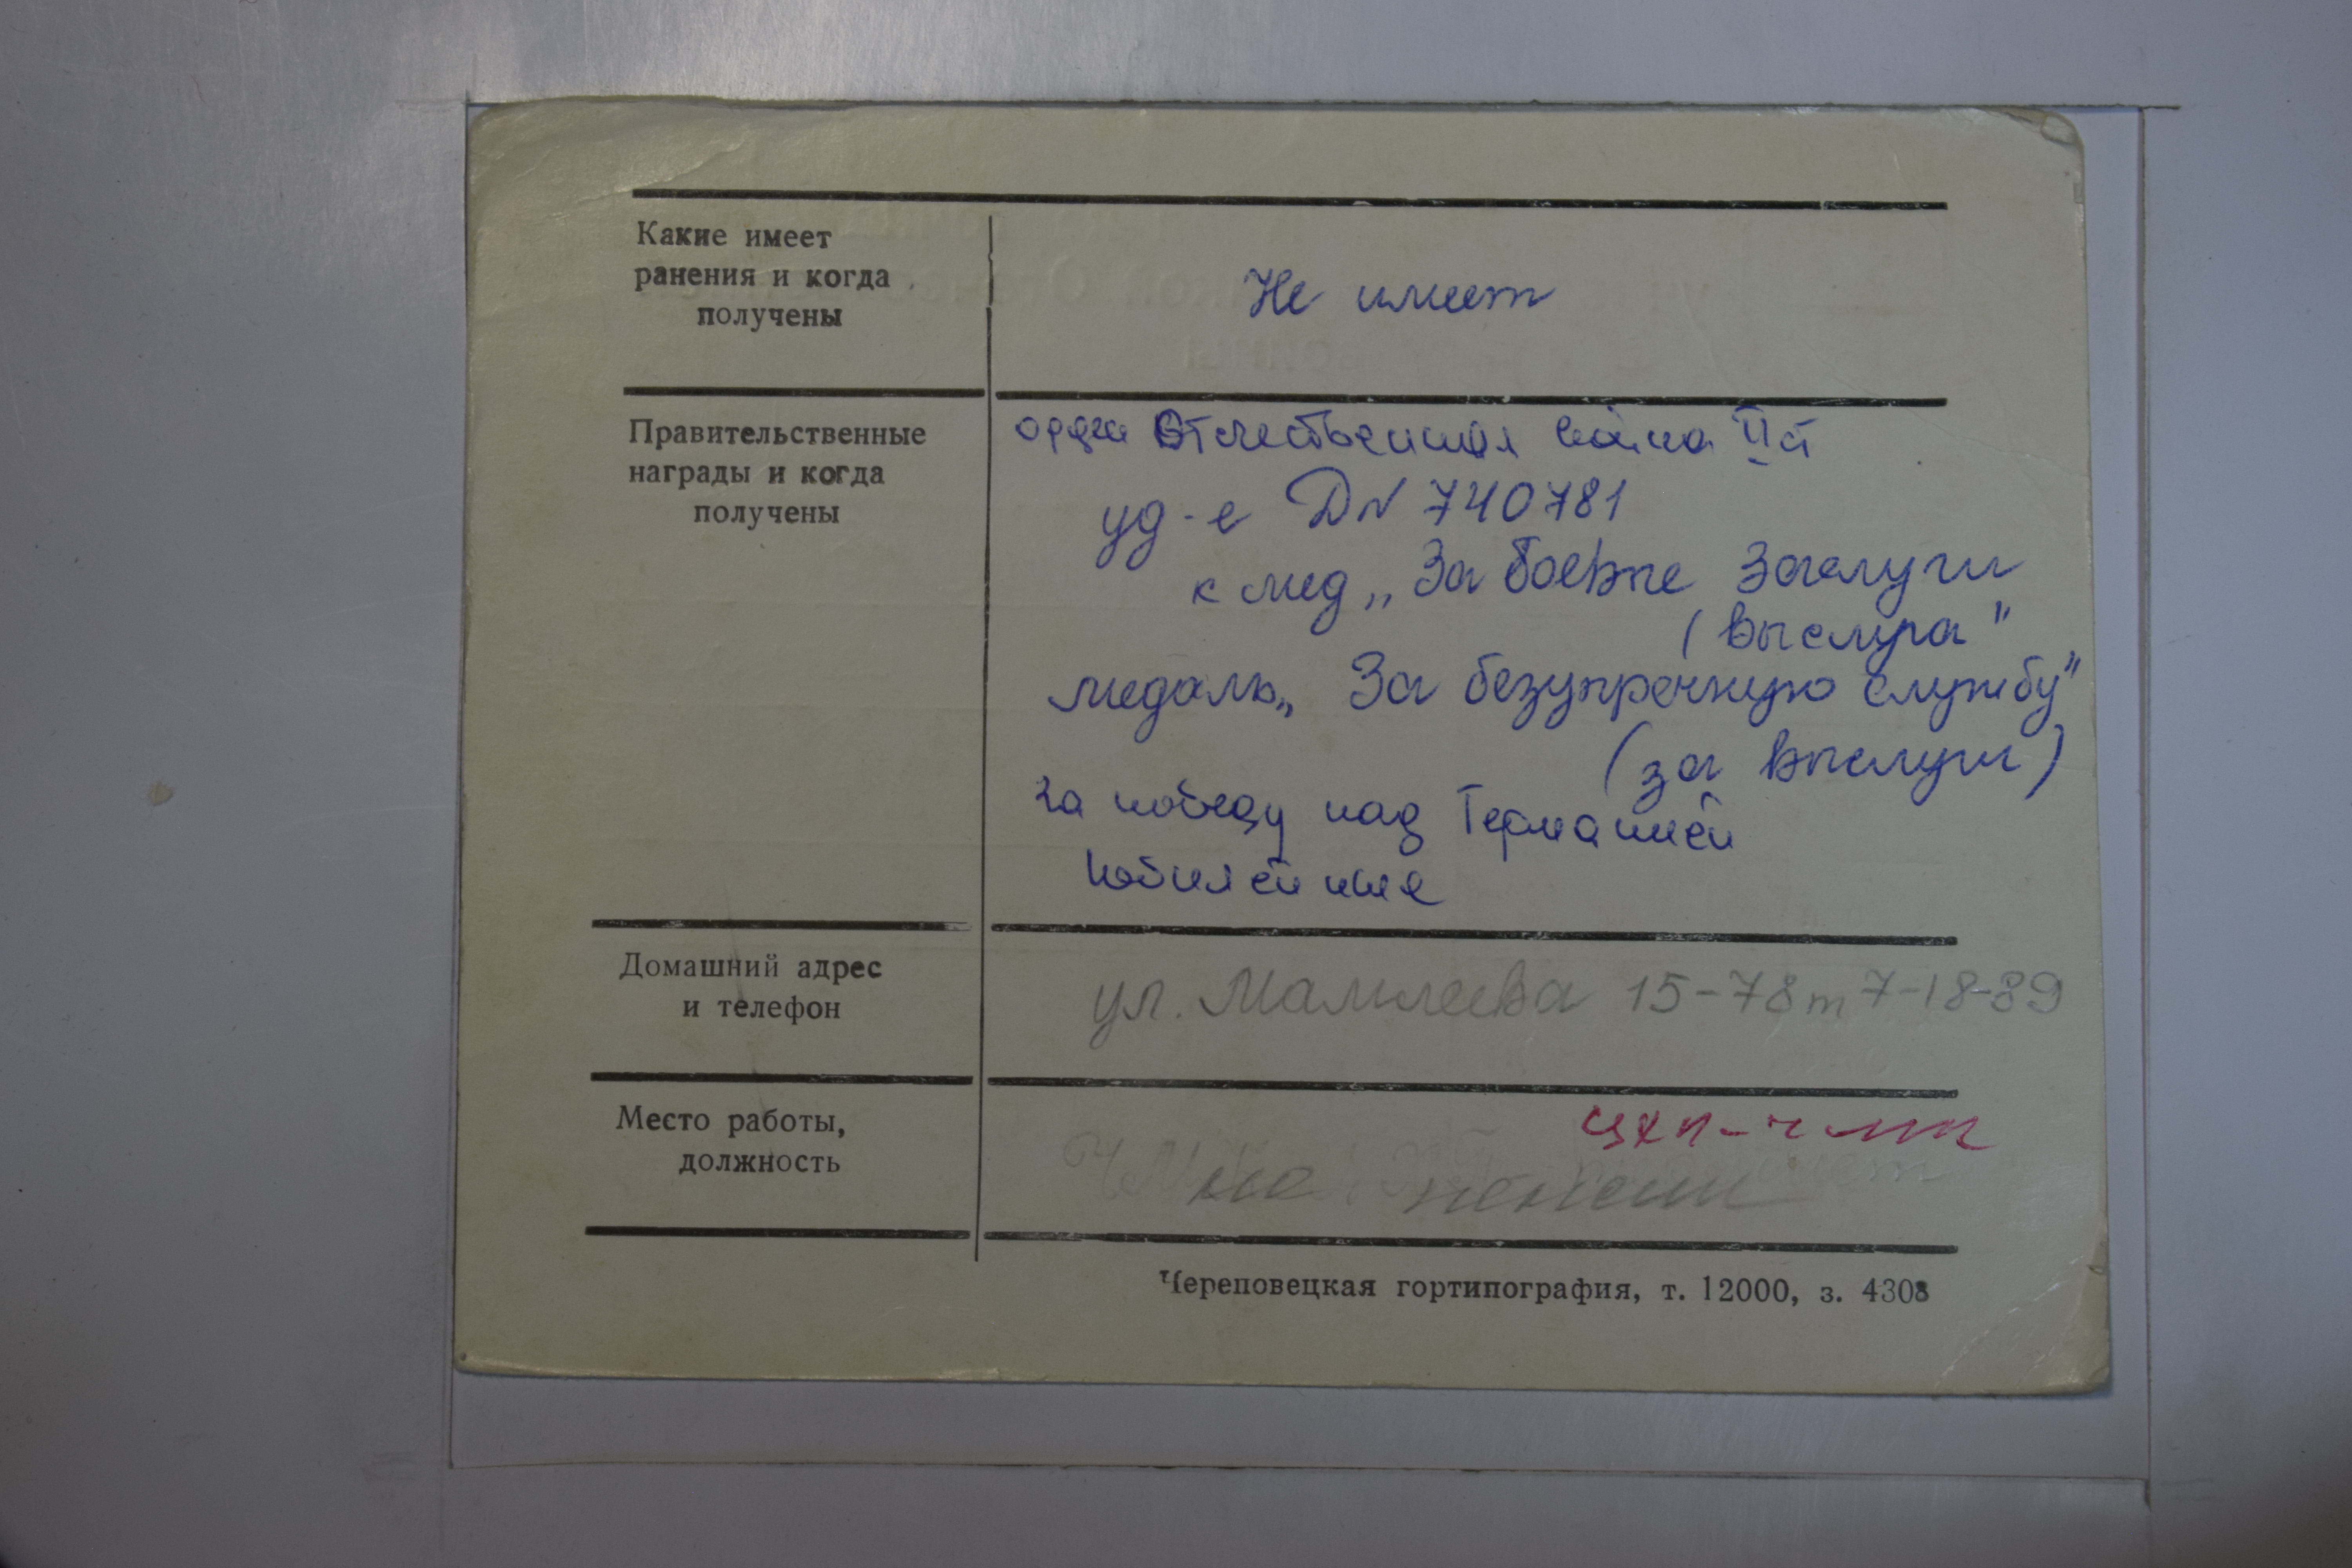 Какие имеет
ранения и когда
получены
Не имеет
Правительственные
награды и когда
получены
орден Отечественная война II ст
уд-е Д N 740781
к мед „За боевые заслуги
(выслуга"
медаль „За безупречную службу"
(за выслуги)
За победу над Германией
Юбилейные
Домашний адрес
и телефон
ул. Мамлеева 15-78 т 7-18-89
Место работы,
должность
ЦХП-ЧМК
на пенсии
Череповецкая гортипография, т. 12000, з. 4308